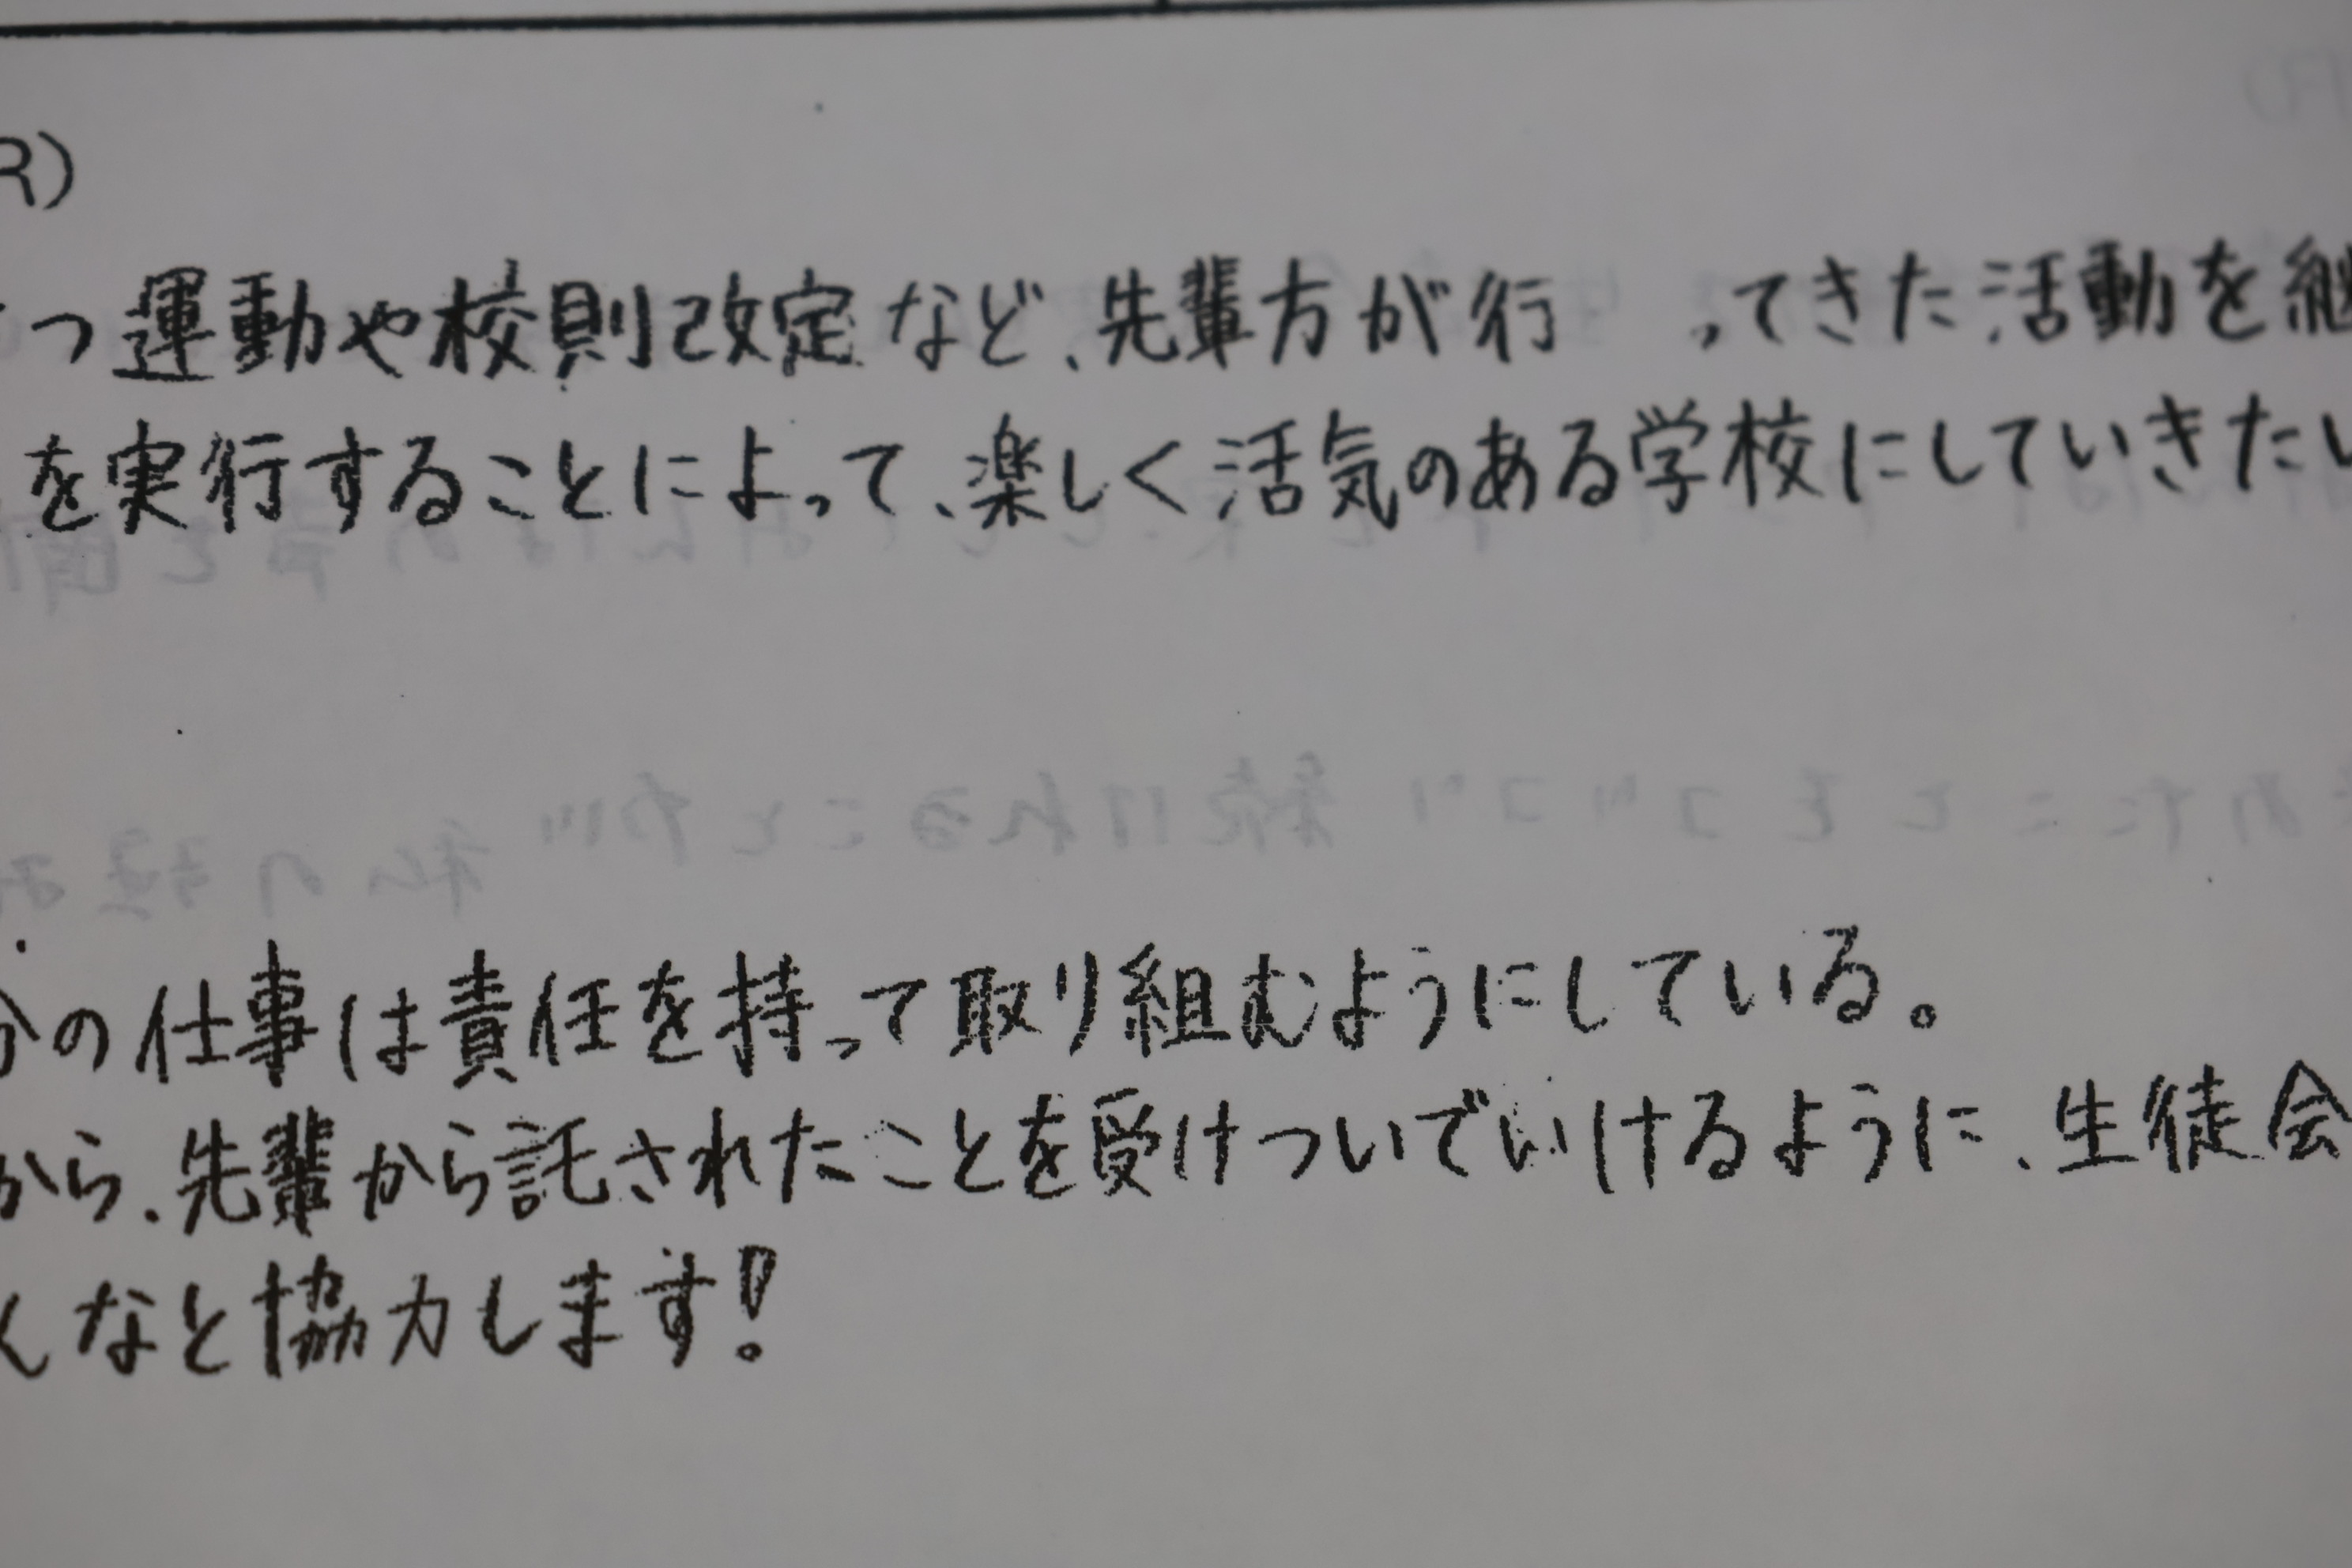 R)
つ運動や校則改定など、先輩方が行ってきた活動を継
を実行することによって、楽しく活気のある学校にしていきたい
の仕事は責任を持って取り組むようにしている。
から、先輩から託されたことを受けついでいけるように、生徒会
んなと協力します!